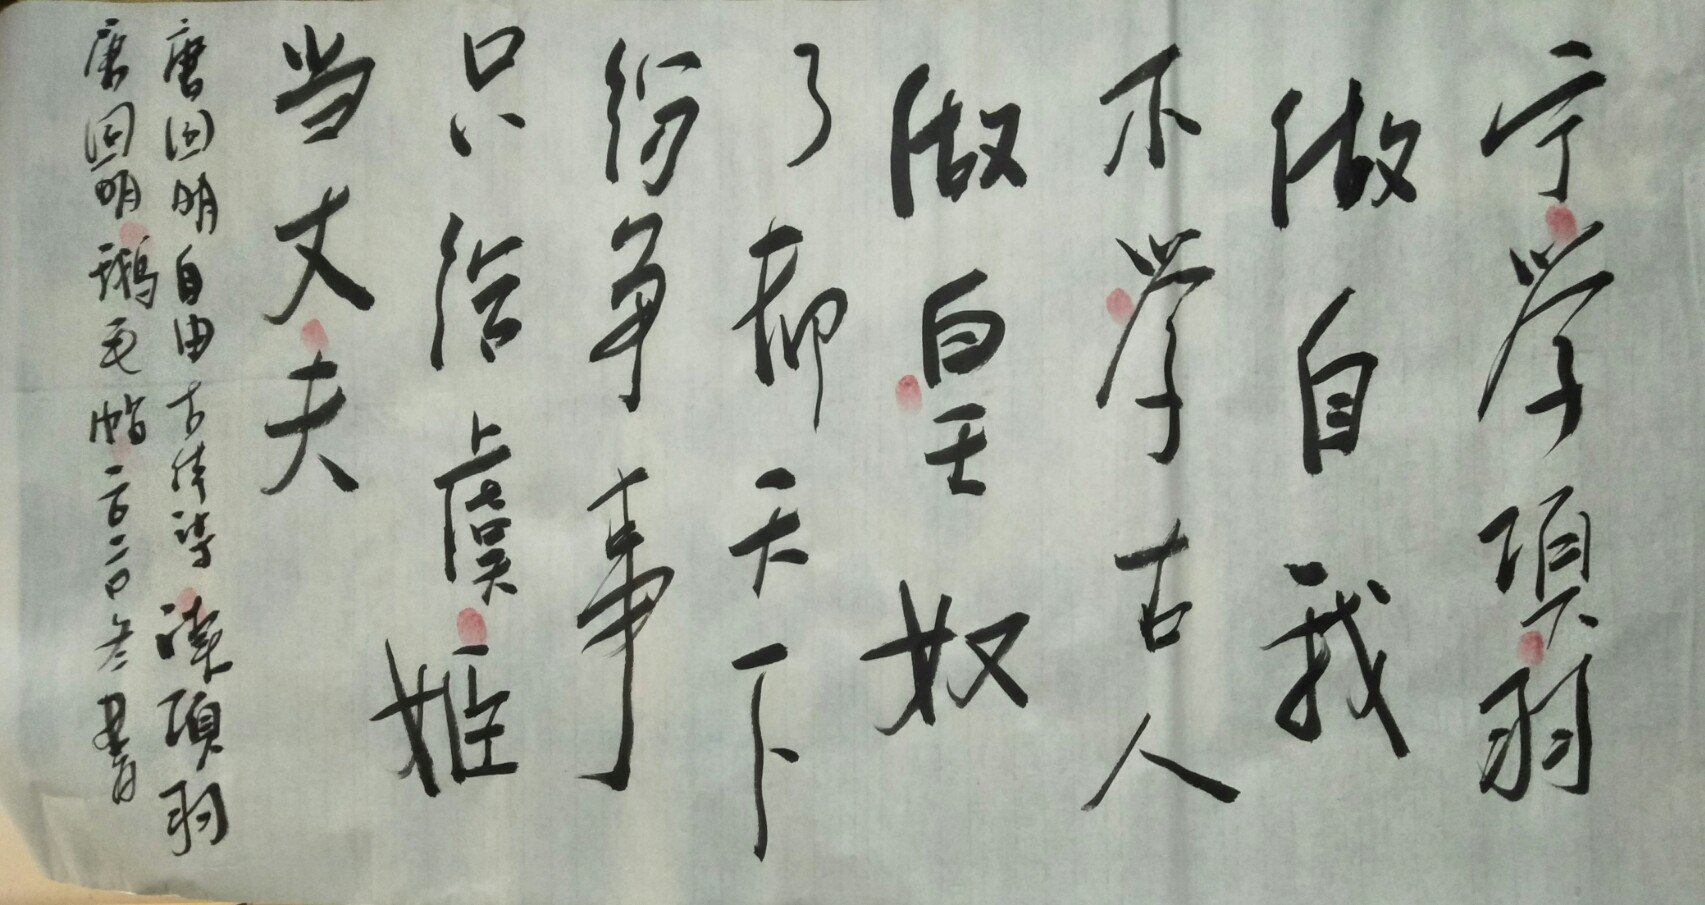 宁学項羽
做自我
不学古人
做皇奴
了却天下
纷争事
只给虞姬
当丈夫
唐回明自由古体诗读項羽
唐回明鹅毛帖二〇二〇冬書